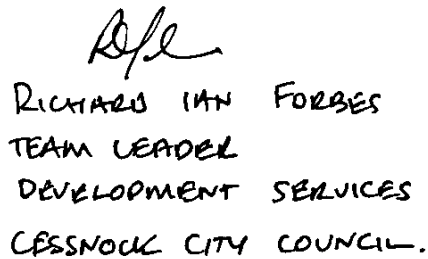 RICHARD IAN FORBES
TEAM LEADER
DEVELOPMENT SERVICES
CESSNOCK CITY COUNCIL.